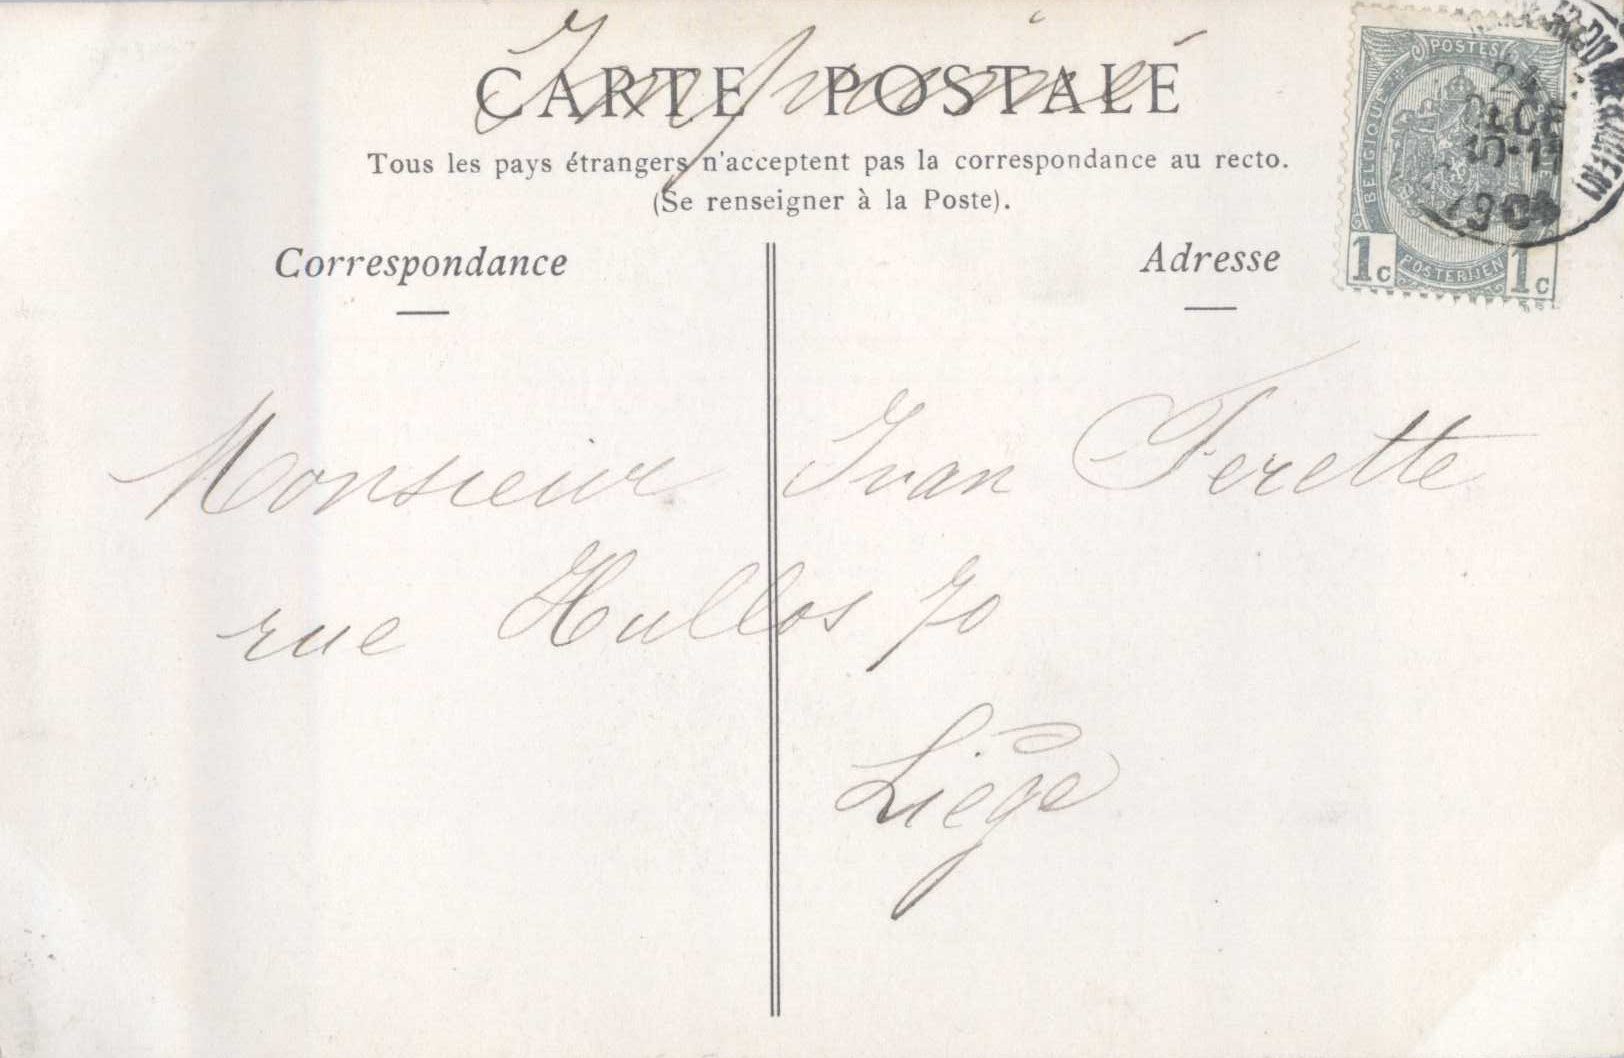 Imprimé
CARTE POSTALE
Tous les pays étrangers n'acceptent pas la correspondance au recto.
(Se renseigner à la Poste).
Correspondance
Adresse
POSTES
BELGIQUE
POSTERIJEN
1c 1c
24
DECE
10-11
Monsieur Ivan Ferette
rue Hullos 70
Liège